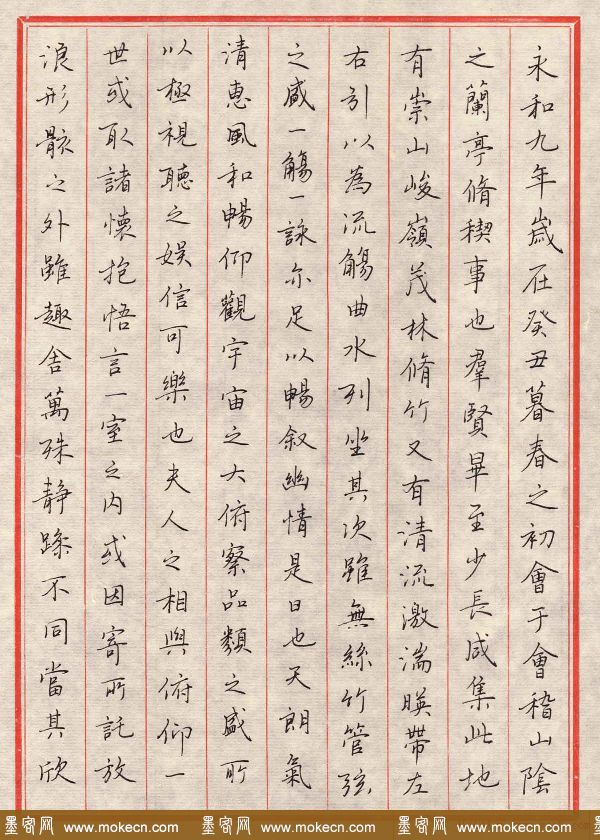 永和九年歲在癸丑暮春之初會于會稽山陰
之蘭亭脩稧事也羣賢畢至少長咸集此地
有崇山峻嶺茂林脩竹又有清流激湍暎帶左
右引以為流觴曲水列坐其次雖無絲竹管弦
之盛一觴一詠亦足以暢敘幽情是日也天朗氣
清惠風和暢仰觀宇宙之大俯察品類之盛所
以極視聽之娛信可樂也夫人之相與俯仰一
世或取諸懷抱悟言一室之內或因寄所託放
浪形骸之外雖趣舍萬殊静躁不同當其欣
墨客网 www.mokecn.com 墨客网 www.mokecn.com 墨客网 www.mokecn.com